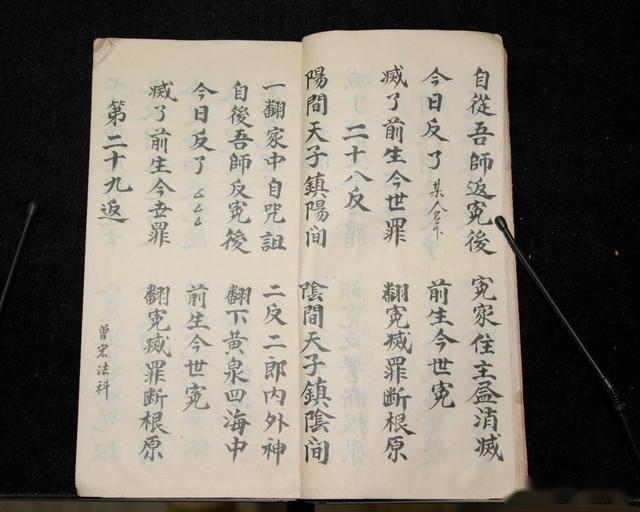 自從吾師返寃後 寃家住主盡消滅
今日反了某人名下 前生今世寃
滅了前生今世罪 翻寃滅罪断根原
二十八反
陽間天子鎮陽间 陰間天子鎮陰间
一翻家中自咒詛 二反二郎内外神
自後吾師反寃後 翻下黃泉四海中
今日反了ムムム 前生今世寃
滅了前生今世罪 翻寃滅罪断根原
第二十九返
曾宏法科